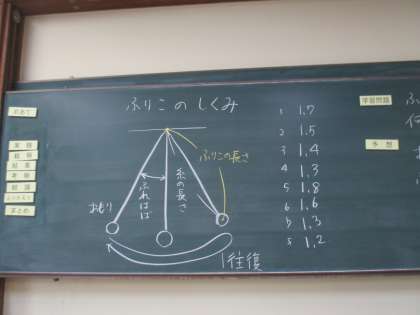 ふりこのしくみ
めあて
実験
結果
考察
結論
まとめ
ふりこの長さ
糸の長さ
ふれはば
おもり
1往復
1 1.7
2 1.5
3 1.4
4 1.3
5 1.8
6 1.6
1.3
1.2
学習問題
予想